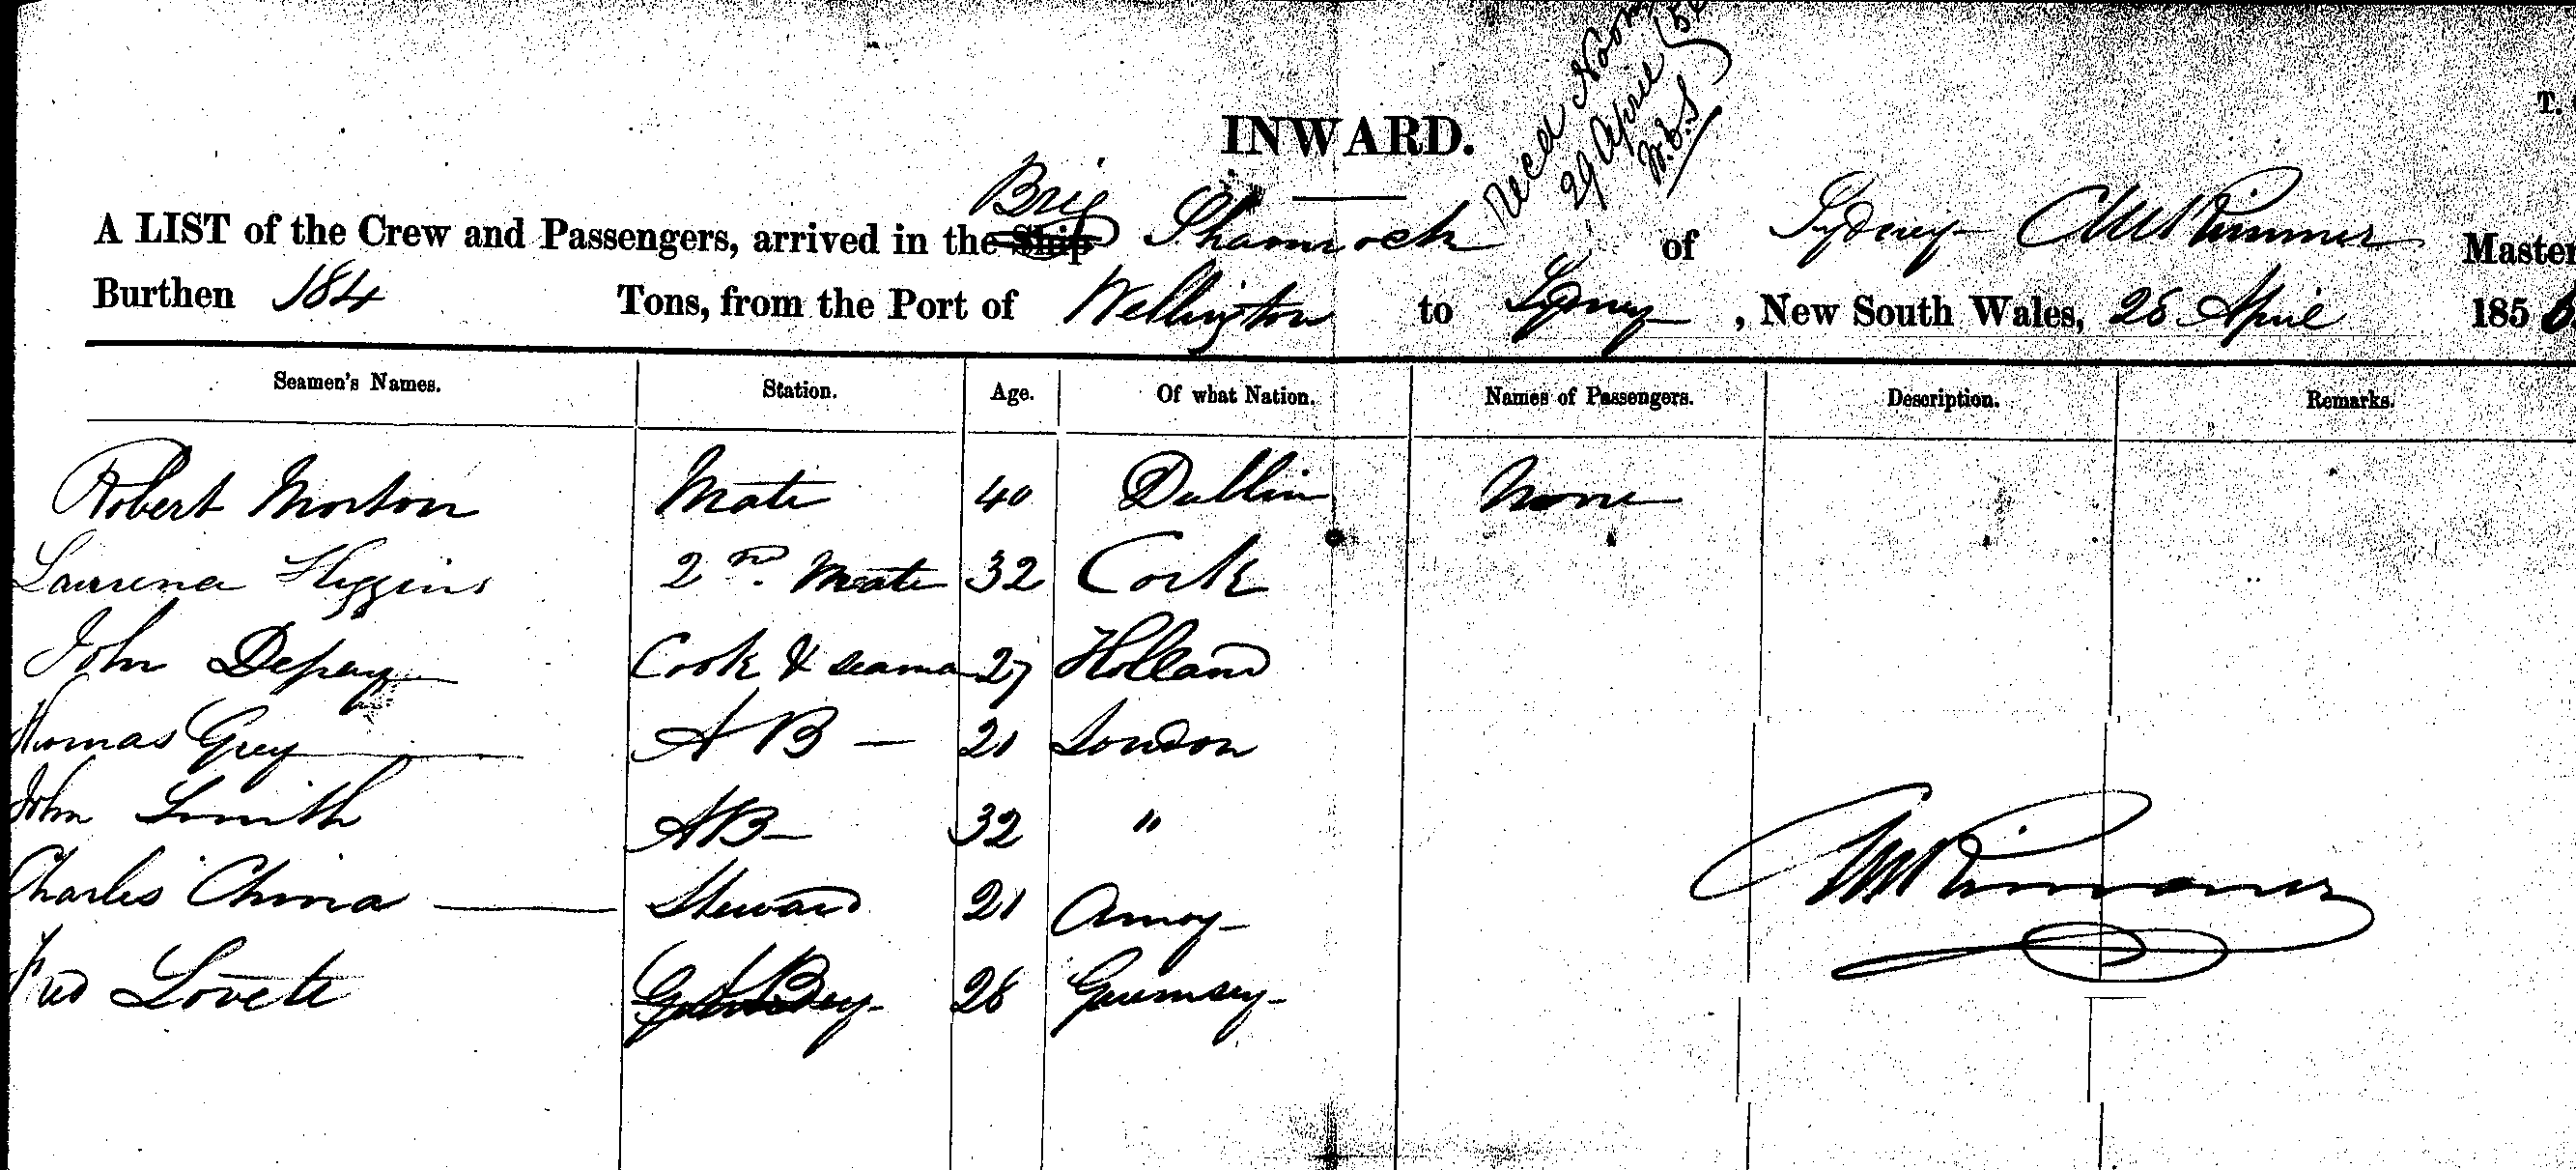 INWARD.
Recd Noon
29 April
W.C.S
T.
Brig
A LIST of the Crew and Passengers, arrived in the Ship Shamrock of Sydney Master
Burthen 184 Tons, from the Port of Wellington to Sydney, New South Wales, 28 April 1856
Seamen's Names. Station. Age. Of what Nation. Names of Passengers. Description. Remarks.
Robert Morton Mate 40 Dublin None
Laurence Higgins 2nd Mate 32 Cork
John Depay Cook & seama 27 Holland
Thomas Grey A B — 21 London
John Smith AB — 32 "
Charles China Steward 21 Amoy
Fred Lovete AB 28 Guernsey